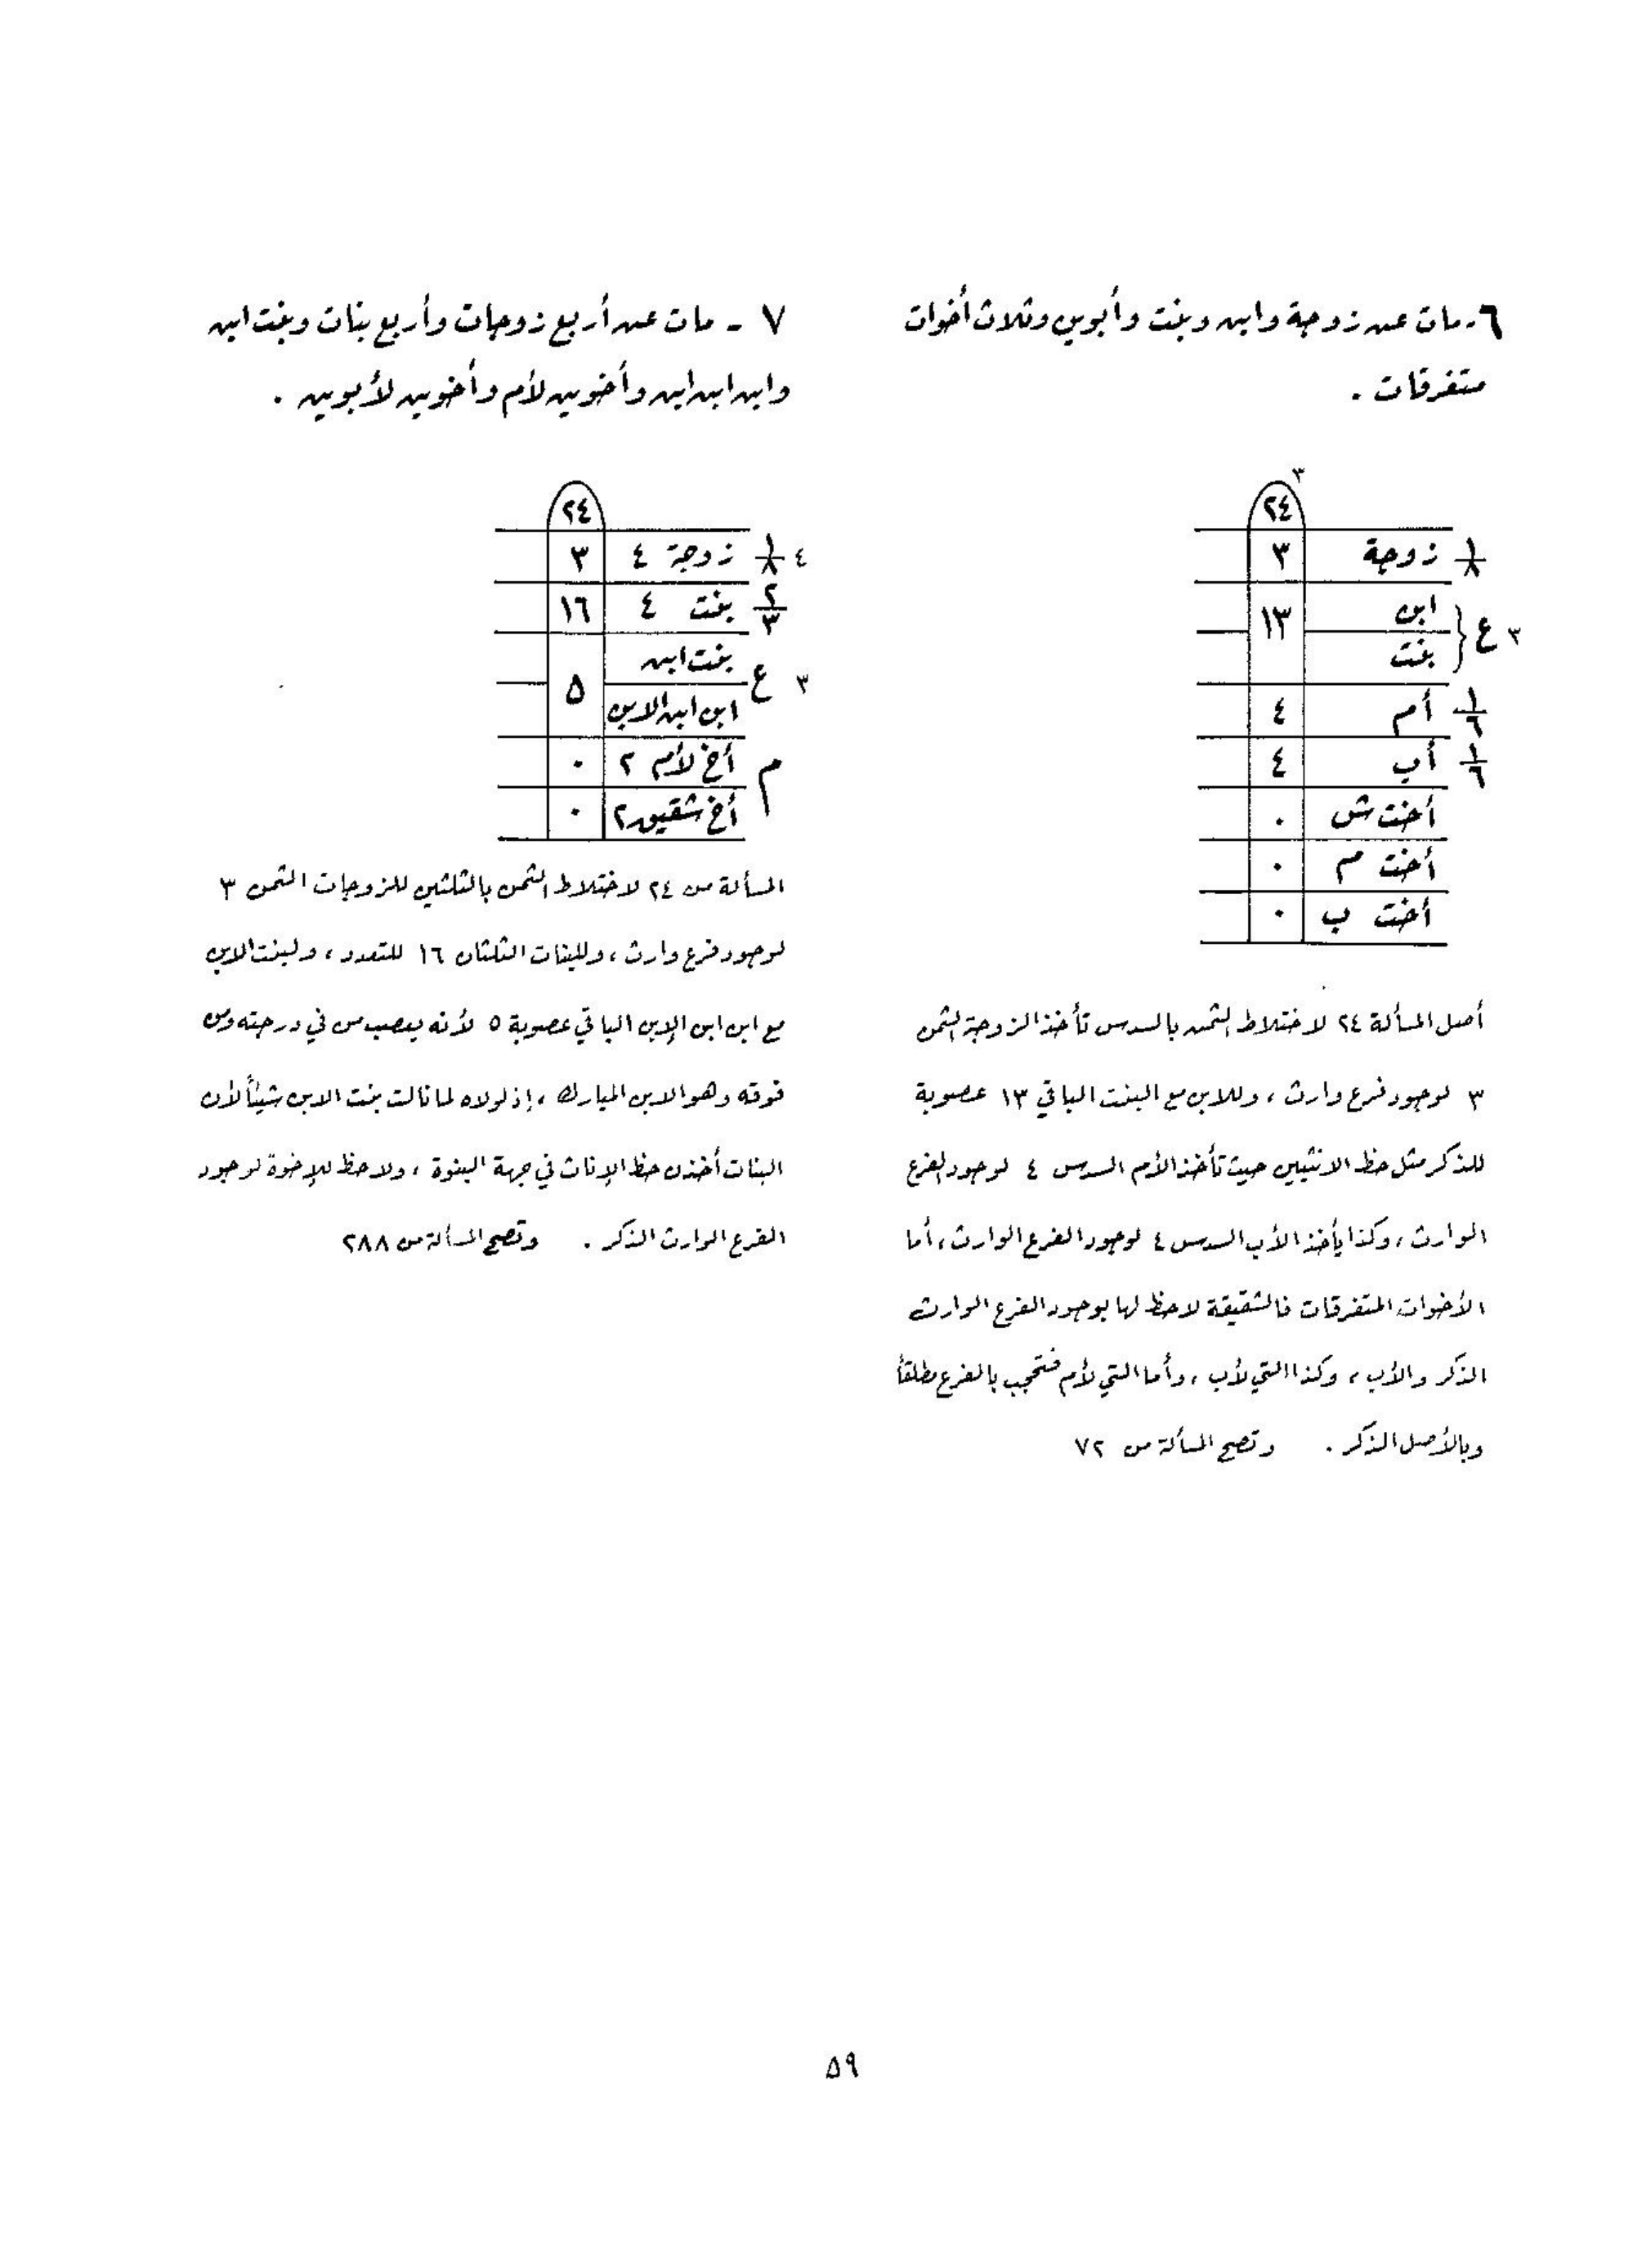 ٦- مات عن زوجة وابن وبنت وأبوين وثلاث أخوات
متفرقات .
٣
٢٤
١/٨ زوجة ٣
٣ ع { ابن ١٣
بنت
١/٦ أم ٤
١/٦ أب ٤
أخت ش ٠
أخت م ٠
أخت ب ٠
أصل المسألة ٢٤ لاختلاط الثمن بالسدس تأخذ الزوجة الثمن
٣ لوجود فرع وارث ، وللابن مع البنت الباقي ١٣ عصوبة
للذكر مثل حظ الانثيين حيث تأخذ الأم السدس ٤ لوجود الفرع
الوارث ، وكذا يأخذ الأب السدس ٤ لوجود الفرع الوارث ، أما
الأخوات المتفرقات فالشقيقة لاحظ لها بوجود الفرع الوارث
الذكر والأب ، وكذا التي لأب ، وأما التي لأم فتحجب بالفرع مطلقاً
وبالأصل الذكر . وتصح المسألة من ٧٢
٧ - مات عن أربع زوجات وأربع بنات وبنت ابن
وابن ابن ابن وأخوين لأم وأخوين لأبوين .
٢٤
٤ ١/٨ زوجة ٤ ٣
٢/٣ بنت ٤ ١٦
٣ ع بنت ابن ٥
ابن ابن الابن
م أخ لأم ٢ ٠
أخ شقيق ٢ ٠
المسألة من ٢٤ لاختلاط الثمن بالثلثين للزوجات الثمن ٣
لوجود فرع وارث ، وللبنات الثلثان ١٦ للتعدد ، ولبنت الابن
مع ابن ابن الإبن الباقي عصوبة ٥ لأنه يعصب من في درجته ومن
فوقه وهو الابن المبارك ، إذ لولاه لما نالت بنت الابن شيئاً لأن
البنات أخذن حظ الإناث في جهة البنوة ، ولاحظ للإخوة لوجود
الفرع الوارث الذكر . وتصح المسألة من ٢٨٨
٥٩